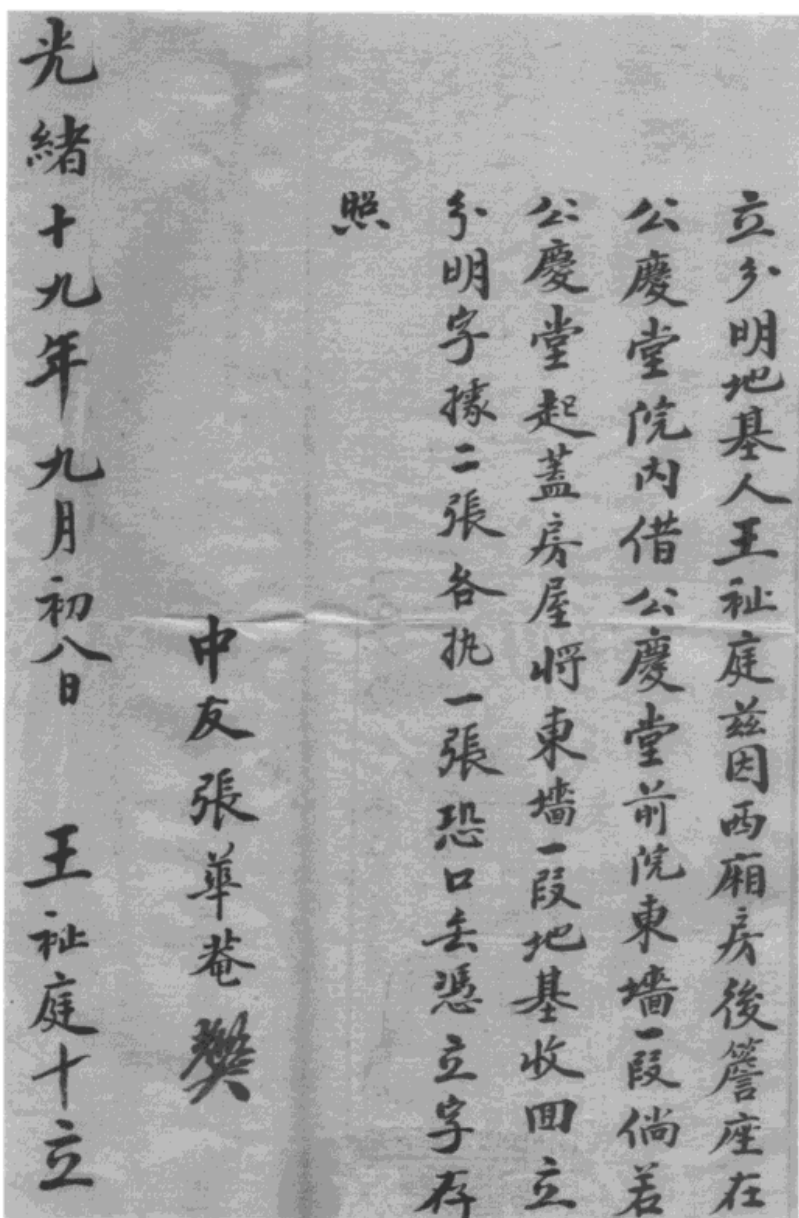 立分明地基人王祉庭茲因西廂房後簷座在
公慶堂院内借公慶堂前院東墻一段倘若
公慶堂起蓋房屋將東墻一段地基收囬立
分明字據二張各执一張恐口無憑立字存
照
中友張華菴
光緒十九年九月初八日 王祉庭十立